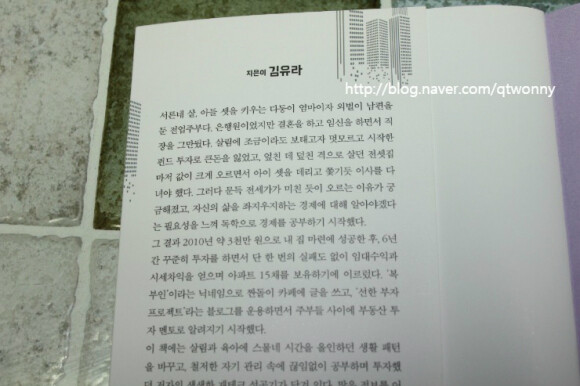 지은이 김유라
http://blog.naver.com/qtwonny
서른네 살, 아들 셋을 키우는 다둥이 엄마이자 외벌이 남편을
둔 전업주부다. 은행원이었지만 결혼을 하고 임신을 하면서 직
장을 그만뒀다. 살림에 조금이라도 보태고자 멋모르고 시작한
펀드 투자로 큰돈을 잃었고, 엎친 데 덮친 격으로 살던 전셋집
마저 값이 크게 오르면서 아이 셋을 데리고 쫓기듯 이사를 다
녀야 했다. 그러다 문득 전세가가 미친 듯이 오르는 이유가 궁
금해졌고, 자신의 삶을 좌지우지하는 경제에 대해 알아야겠다
는 필요성을 느껴 독학으로 경제를 공부하기 시작했다.
그 결과 2010년 약 3천만 원으로 내 집 마련에 성공한 후, 6년
간 꾸준히 투자를 하면서 단 한 번의 실패도 없이 임대수익과
시세차익을 얻으며 아파트 15채를 보유하기에 이르렀다. '복
부인'이라는 닉네임으로 짠돌이 카페에 글을 쓰고, '선한 부자
프로젝트'라는 블로그를 운용하면서 주부들 사이에 부동산 투
자 멘토로 알려지기 시작했다.
이 책에는 살림과 육아에 스물네 시간을 올인하던 생활 패턴
을 바꾸고, 철저한 자기 관리 속에 끊임없이 공부하며 투자했